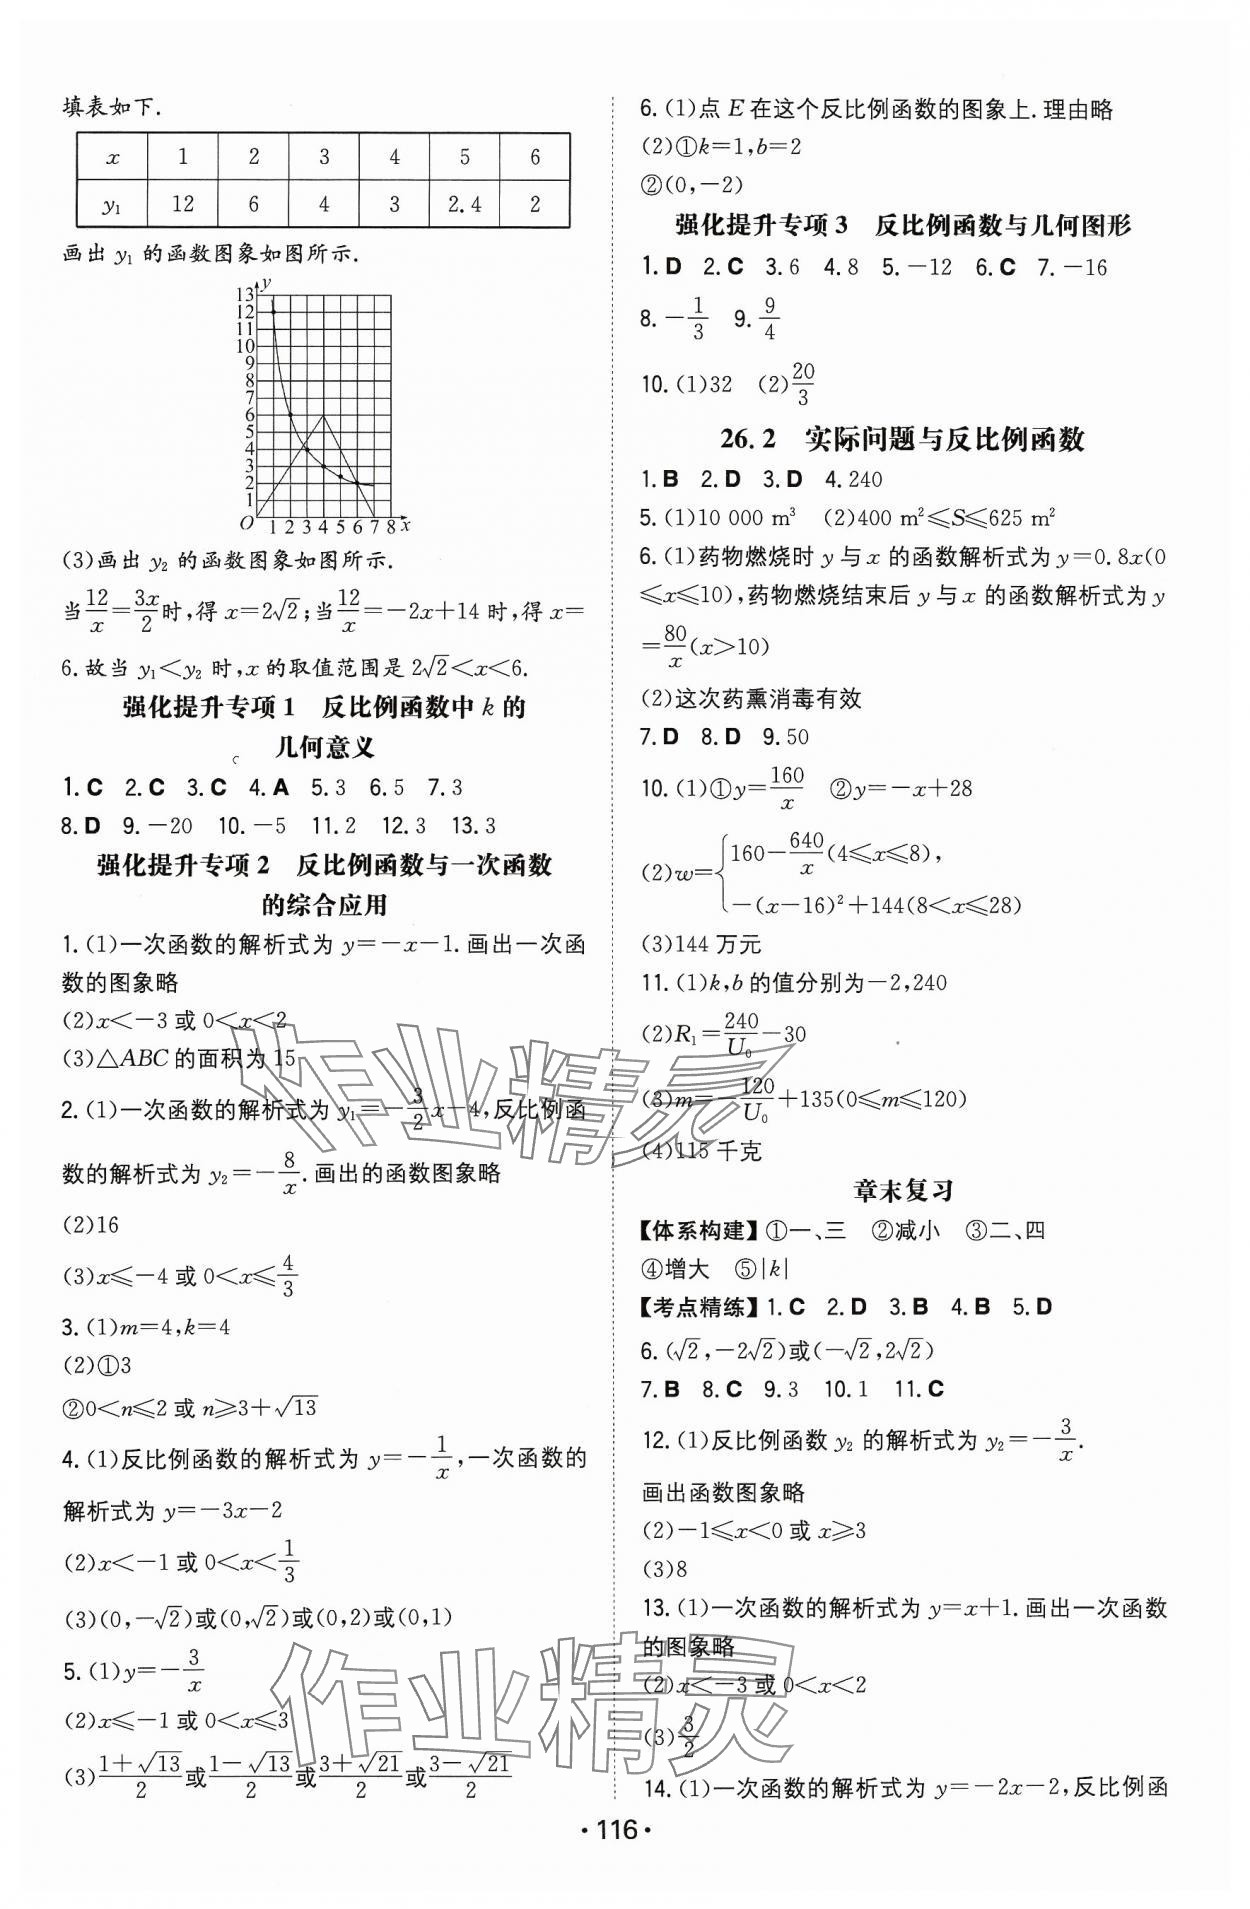 填表如下.
x 1 2 3 4 5 6
y₁ 12 6 4 3 2.4 2
画出 y₁ 的函数图象如图所示.
y
13
12
11
10
9
8
7
6
5
4
3
2
1
O 1 2 3 4 5 6 7 8 x
(3)画出 y₂ 的函数图象如图所示.
当12/x=3x/2时,得 x=2√2;当12/x=-2x+14 时,得 x=
6.故当 y₁<y₂ 时,x 的取值范围是 2√2<x<6.
强化提升专项 1 反比例函数中 k 的
几何意义
1.C 2.C 3.C 4.A 5.3 6.5 7.3
8.D 9.-20 10.-5 11.2 12.3 13.3
强化提升专项 2 反比例函数与一次函数
的综合应用
1.(1)一次函数的解析式为 y=-x-1.画出一次函
数的图象略
(2)x<-3 或 0<x<2
(3)△ABC 的面积为 15
2.(1)一次函数的解析式为 y₁=-3/2x-4,反比例函
数的解析式为 y₂=-8/x.画出的函数图象略
(2)16
(3)x≤-4 或 0<x≤4/3
3.(1)m=4,k=4
(2)①3
②0<n≤2 或 n≥3+√13
4.(1)反比例函数的解析式为 y=-1/x,一次函数的
解析式为 y=-3x-2
(2)x<-1 或 0<x<1/3
(3)(0,-√2)或(0,√2)或(0,2)或(0,1)
5.(1)y=-3/x
(2)x≤-1 或 0<x≤3
(3)(1+√13)/2或(1-√13)/2或(3+√21)/2或(3-√21)/2
6.(1)点 E 在这个反比例函数的图象上.理由略
(2)①k=1,b=2
②(0,-2)
强化提升专项 3 反比例函数与几何图形
1.D 2.C 3.6 4.8 5.-12 6.C 7.-16
8.-1/3 9.9/4
10.(1)32 (2)20/3
26.2 实际问题与反比例函数
1.B 2.D 3.D 4.240
5.(1)10 000 m³ (2)400 m²≤S≤625 m²
6.(1)药物燃烧时 y 与 x 的函数解析式为 y=0.8x(0
≤x≤10),药物燃烧结束后 y 与 x 的函数解析式为 y
=80/x(x>10)
(2)这次药熏消毒有效
7.D 8.D 9.50
10.(1)①y=160/x ②y=-x+28
(2)w={160-640/x(4≤x≤8),
-(x-16)²+144(8<x≤28)
(3)144 万元
11.(1)k,b 的值分别为-2,240
(2)R₁=240/U₀-30
(3)m=-120/U₀+135(0≤m≤120)
(4)115 千克
章末复习
【体系构建】①一、三 ②减小 ③二、四
④增大 ⑤|k|
【考点精练】1.C 2.D 3.B 4.B 5.D
6.(√2,-2√2)或(-√2,2√2)
7.B 8.C 9.3 10.1 11.C
12.(1)反比例函数 y₂ 的解析式为 y₂=-3/x.
画出函数图象略
(2)-1≤x<0 或 x≥3
(3)8
13.(1)一次函数的解析式为 y=x+1.画出一次函数
的图象略
(2)x<-3 或 0<x<2
(3)3/2
14.(1)一次函数的解析式为 y=-2x-2,反比例函
作业精灵
作业精灵
·116·